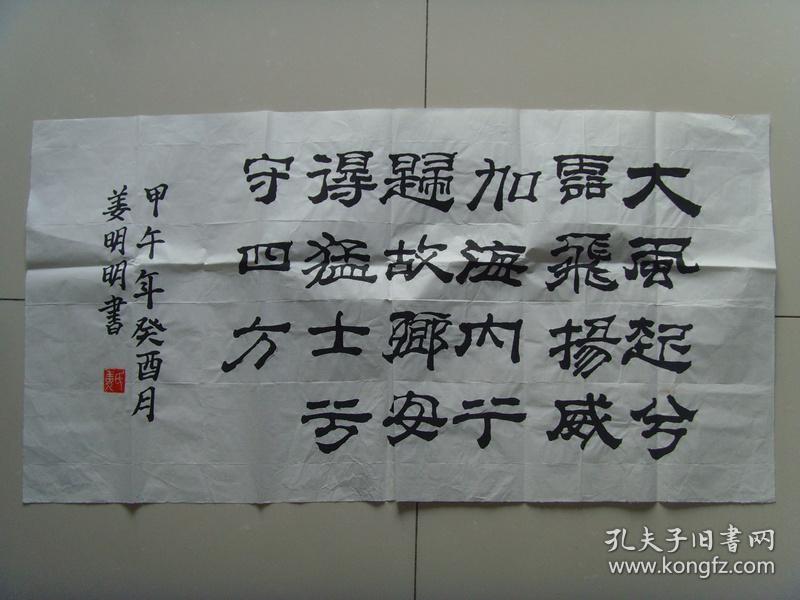 大風起兮
雲飛揚威
加海内兮
歸故鄉安
得猛士兮
守四方
甲午年癸酉月
姜明明書
孔夫子旧书网
www.kongfz.com